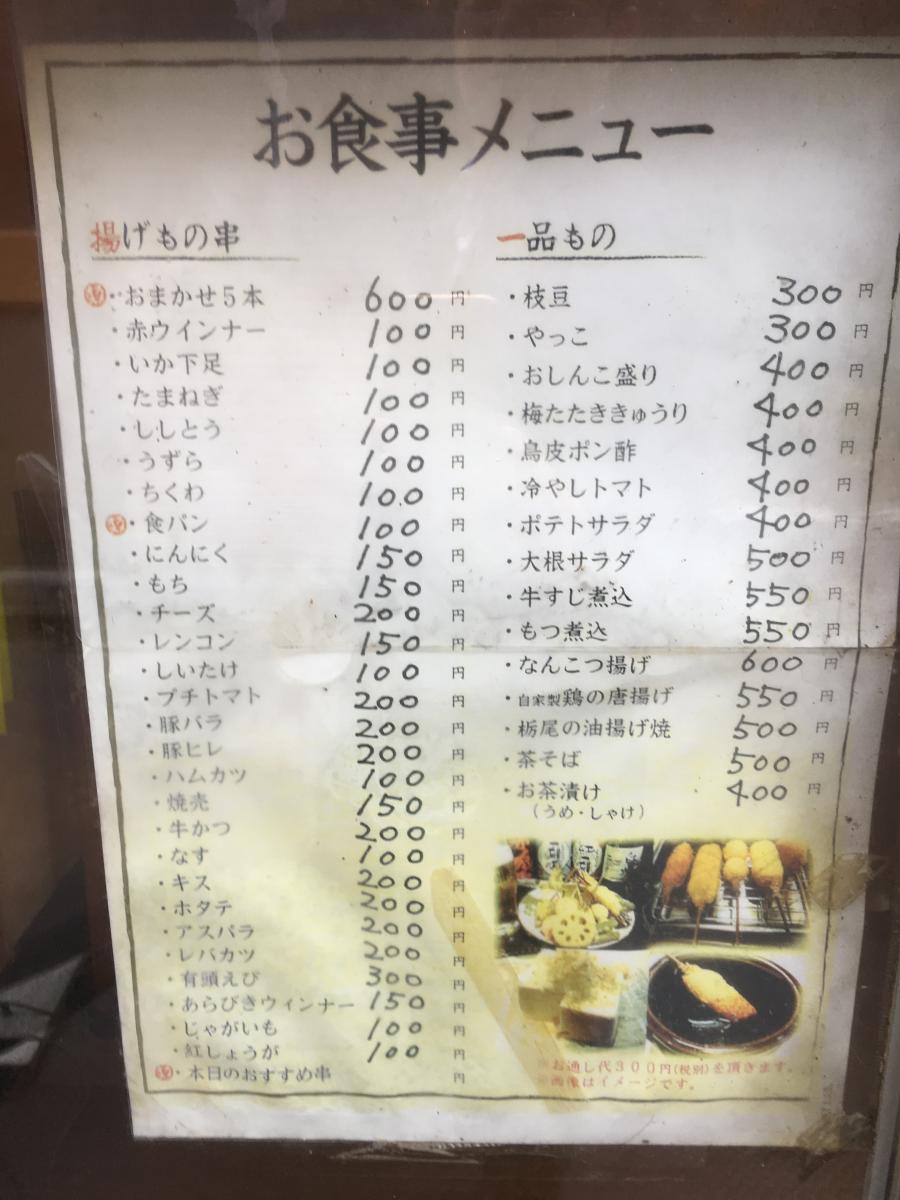 お食事メニュー
揚げもの串
・おまかせ5本 600 円
・赤ウインナー 100 円
・いか下足 100 円
・たまねぎ 100 円
・ししとう 100 円
・うずら 100 円
・ちくわ 100 円
・食パン 100 円
・にんにく 150 円
・もち 150 円
・チーズ 200 円
・レンコン 150 円
・しいたけ 100 円
・プチトマト 200 円
・豚バラ 200 円
・豚ヒレ 200 円
・ハムカツ 100 円
・焼売 150 円
・牛かつ 200 円
・なす 100 円
・キス 200 円
・ホタテ 200 円
・アスパラ 200 円
・レバカツ 200 円
・有頭えび 300 円
・あらびきウィンナー 150 円
・じゃがいも 100 円
・紅しょうが 100 円
・本日のおすすめ串 円
一品もの
・枝豆 300 円
・やっこ 300 円
・おしんこ盛り 400 円
・梅たたききゅうり 400 円
・鳥皮ポン酢 400 円
・冷やしトマト 400 円
・ポテトサラダ 400 円
・大根サラダ 500 円
・牛すじ煮込 550 円
・もつ煮込 550 円
・なんこつ揚げ 600 円
・自家製鶏の唐揚げ 550 円
・栃尾の油揚げ焼 500 円
・茶そば 500 円
・お茶漬け 400 円
（うめ・しゃけ）
※お通し代300円(税別)を頂きます。
※画像はイメージです。